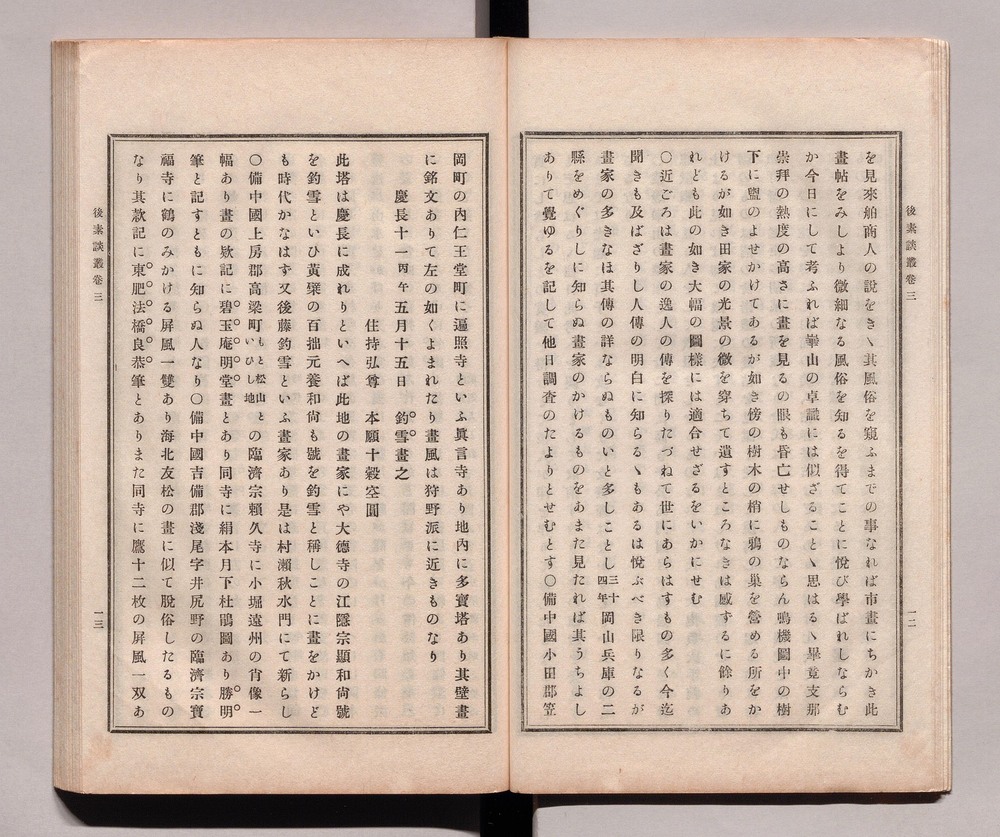 後素談叢卷三
一二
を見來舶商人の說をきゝ其風俗を窺ふまでの事なれば市畫にちかき此
畫帖をみしより微細なる風俗を知るを得てことに悅び學ばれしならむ
か今日にして考ふれば崋山の卓識には似ざることゝ思はるゝ畢竟支那
崇拜の熱度の高さに畫を見るの眼も昏亡せしものならん鴨機圖中の樹
下に盥のよせかけてあるが如き傍の樹木の梢に鴉の巢を營める所をか
けるが如き田家の光景の微を穿ちて遺すところなきは感ずるに餘りあ
れども此の如き大幅の圖樣には適合せざるをいかにせむ
〇近ごろは畫家の逸人の傳を探りたづねて世にあらはすもの多く今迄
聞きも及ばざりし人傳の明白に知らるゝもあるは悅ぶべき限りなるが
畫家の多きなほ其傳の詳ならぬものいと多しことし三十四年岡山兵庫の二
縣をめぐりしに知らぬ畫家のかけるものをあまた見たれば其うちよし
ありて覺ゆるを記して他日調査のたよりとせむとす〇備中國小田郡笠
岡町の內仁王堂町に遍照寺といふ眞言寺あり地內に多寶塔あり其壁畫
に銘文ありて左の如くよまれたり畫風は狩野派に近きものなり
慶長十一丙午五月十五日　釣雪畫之
住持弘尊　本願十穀空圓
此塔は慶長に成れりといへば此地の畫家にや大德寺の江隱宗顯和尙號
を釣雪といひ黃檗の百拙元養和尙も號を釣雪と稱しことに畫をかけど
も時代かなはず又後藤釣雪といふ畫家あり是は村瀨秋水門にて新らし
〇備中國上房郡高梁町もと松山といひし地の臨濟宗賴久寺に小堀遠州の肖像一
幅あり畫の欵記に碧玉庵明堂畫とあり同寺に絹本月下杜鵑圖あり勝明
筆と記すともに知らぬ人なり〇備中國吉備郡淺尾字井尻野の臨濟宗寶
福寺に鶴のみかける屏風一雙あり海北友松の畫に似て脫俗したるもの
なり其款記に東肥法橋良恭筆とありまた同寺に鷹十二枚の屏風一双あ
後素談叢卷三
一三